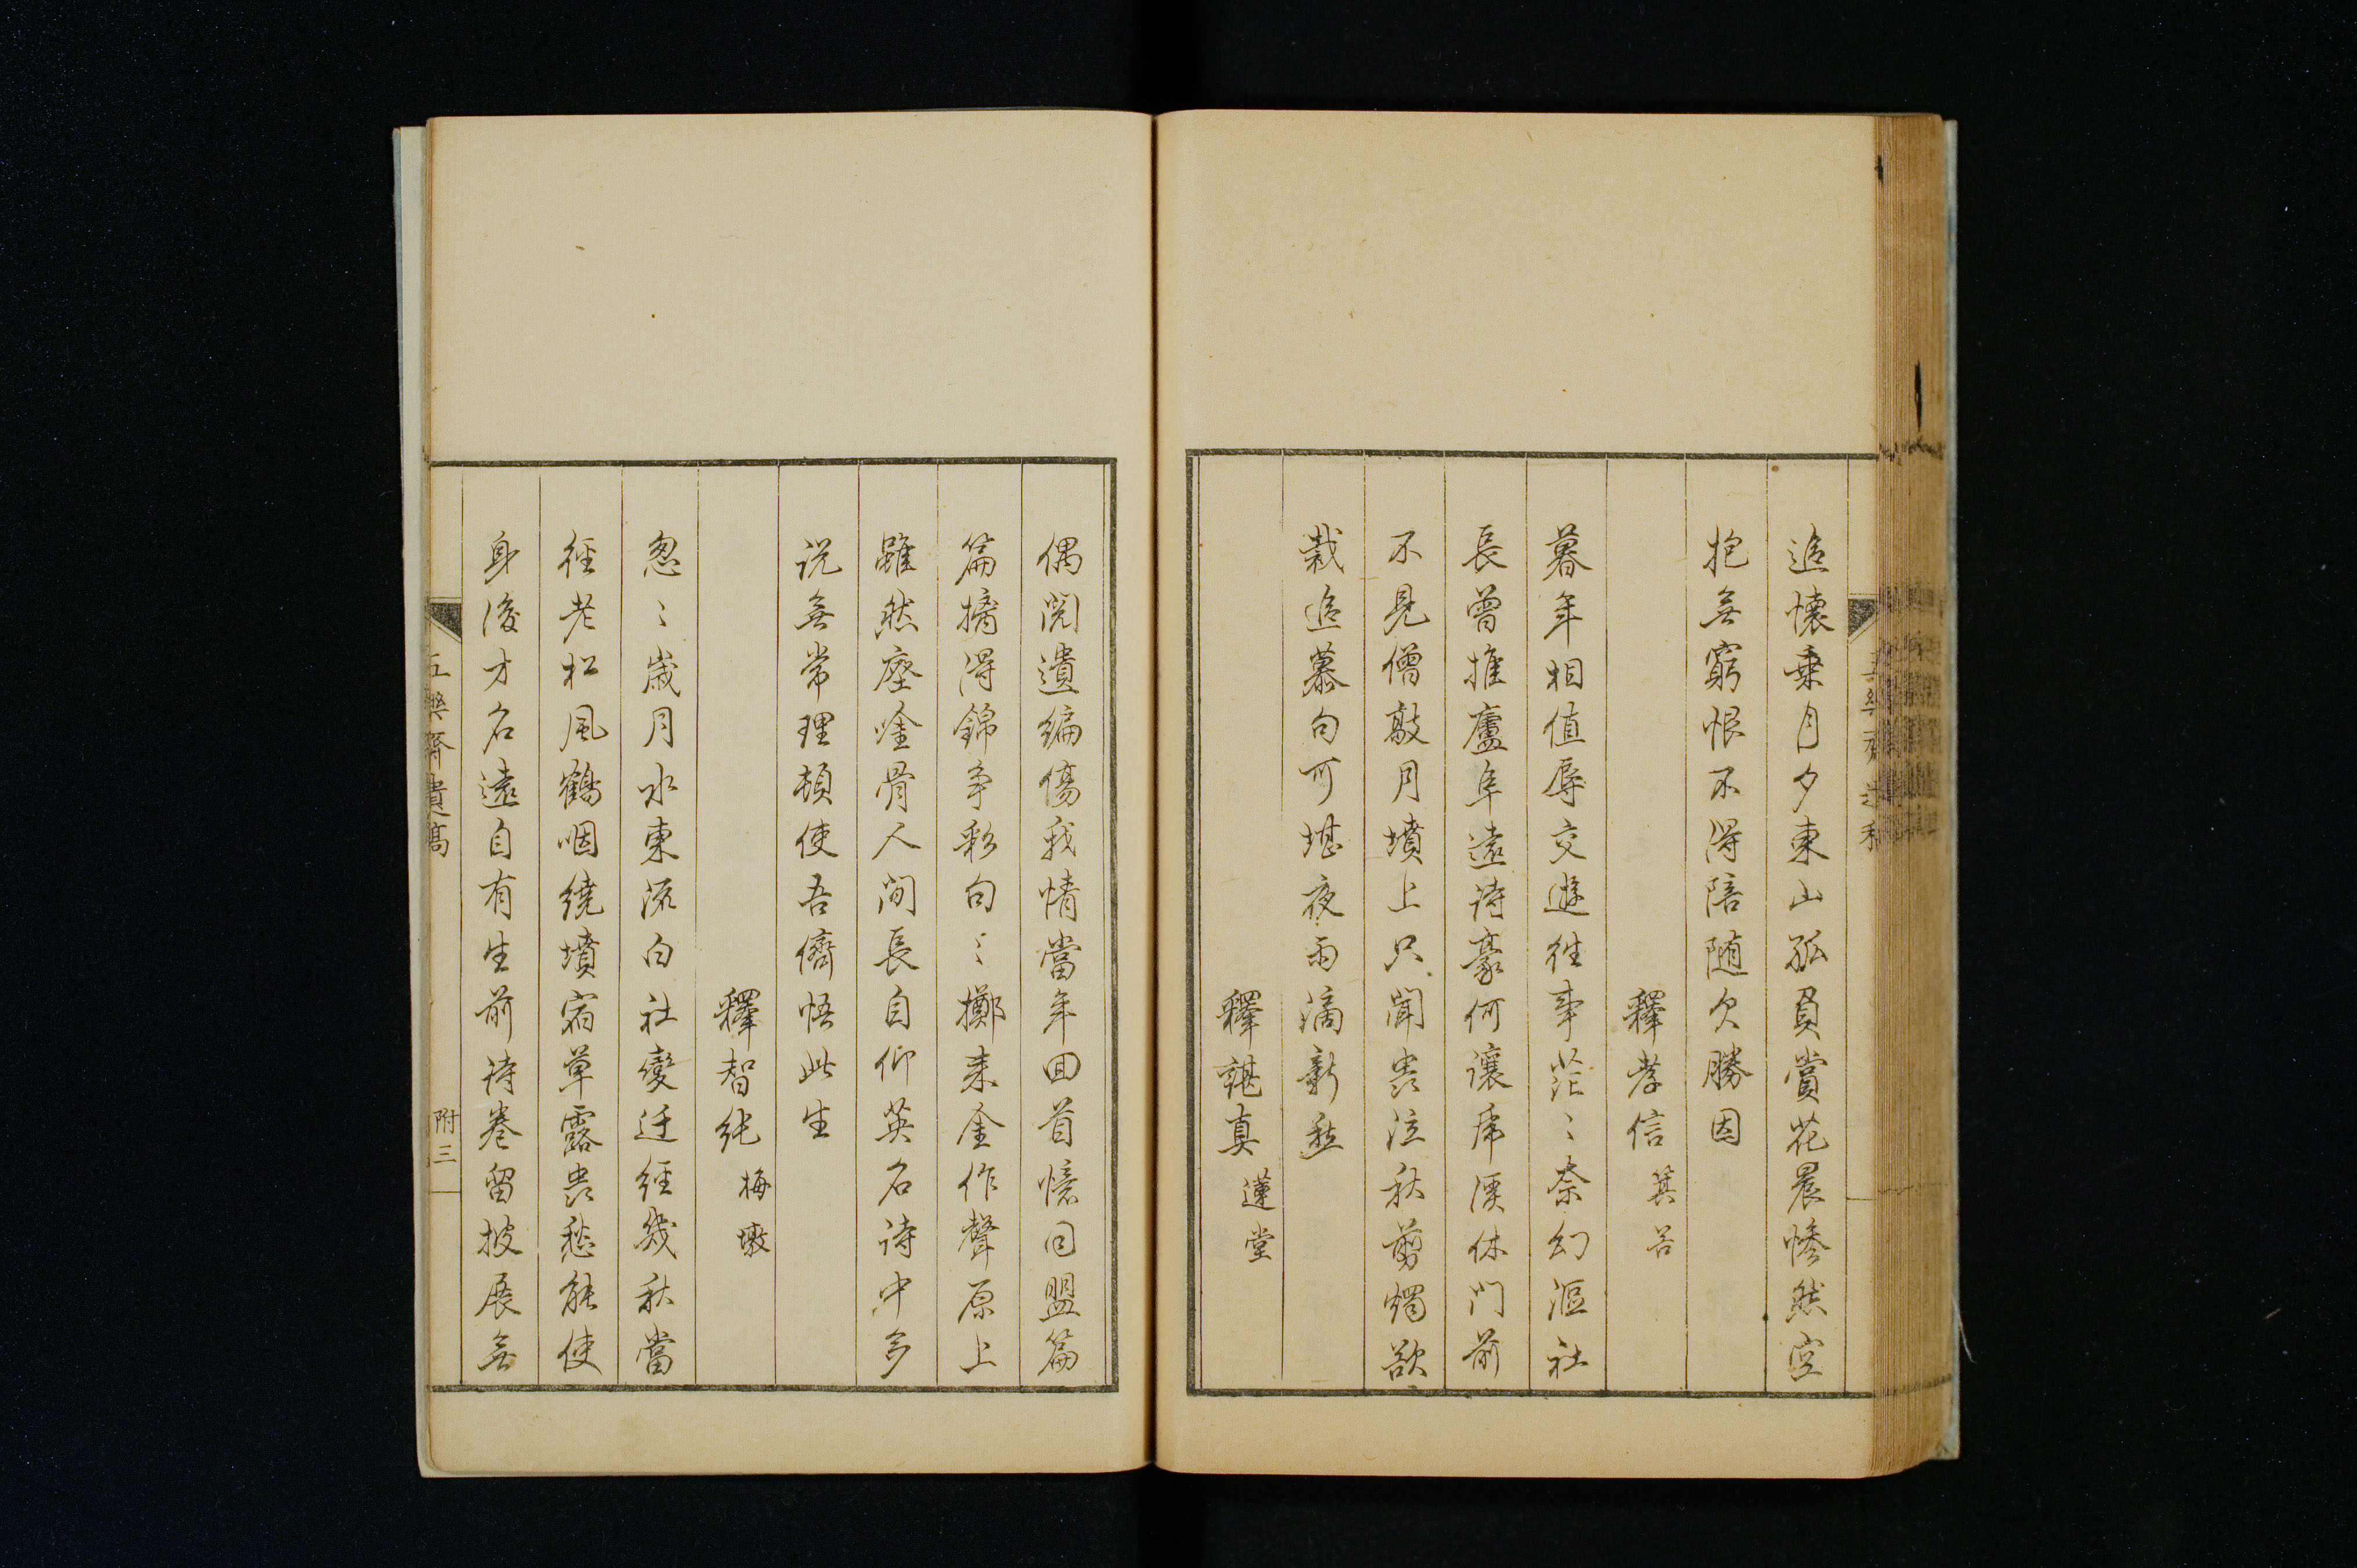 追懷乗月夕東山孤負賞花晨慘然空
抱無窮恨不得陪随欠勝因
釋孝信 箕谷
暮年相値辱交遊往事茫〻奈幻漚社
長曾推廬阜遠詩豪何讓虎溪休門前
不見僧敲月墳上只聞虫泣秋剪燭欲
裁追慕句可堪夜雨滴新愁
釋諶真 蓮堂
偶閲遺編傷我情當年回首憶同盟篇
篇摛得錦争彩句〻擲来金作聲原上
雖然塵唫骨人間長自仰英名詩中多
説無常理頓使吾儕悟此生
釋智純 梅墩
怱〻歳月水東流白社變迁經幾秋當
徑老松風鶴咽繞墳宿草露虫愁能使
身後才名遠自有生前詩巻留披展無
五樂齋遺稿
附三